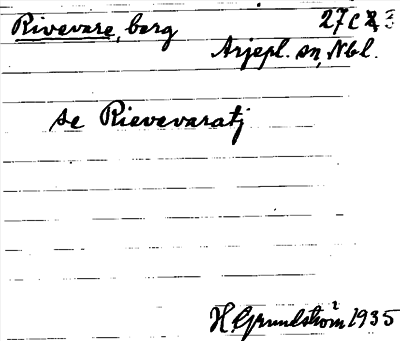 Rivevare, berg 27c
Arjepl. sn, Nbl.
se Rievevaratj
H Grundström 1935